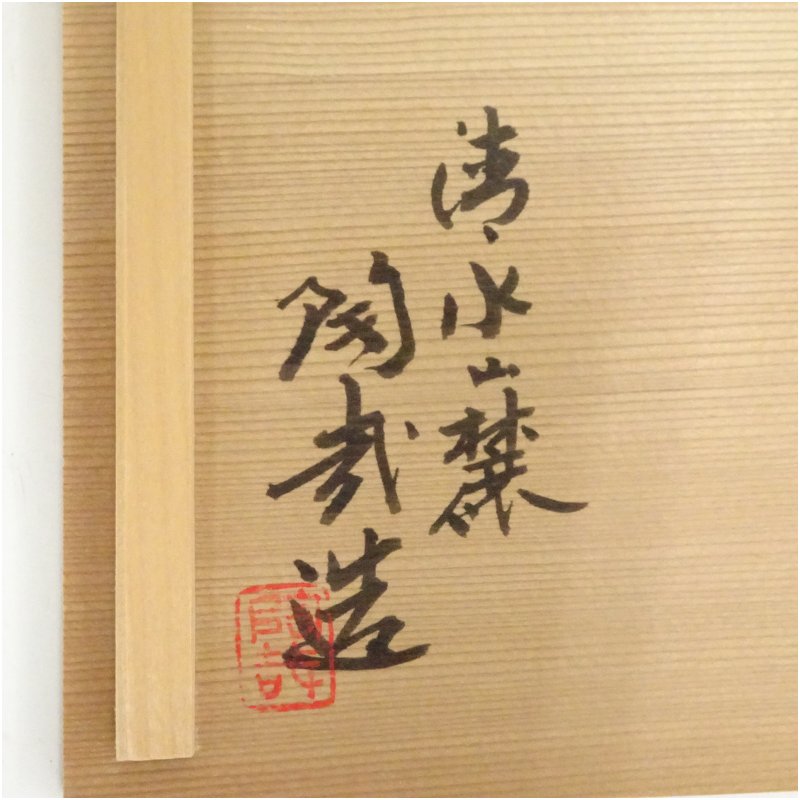 清水山麓
陶哉造